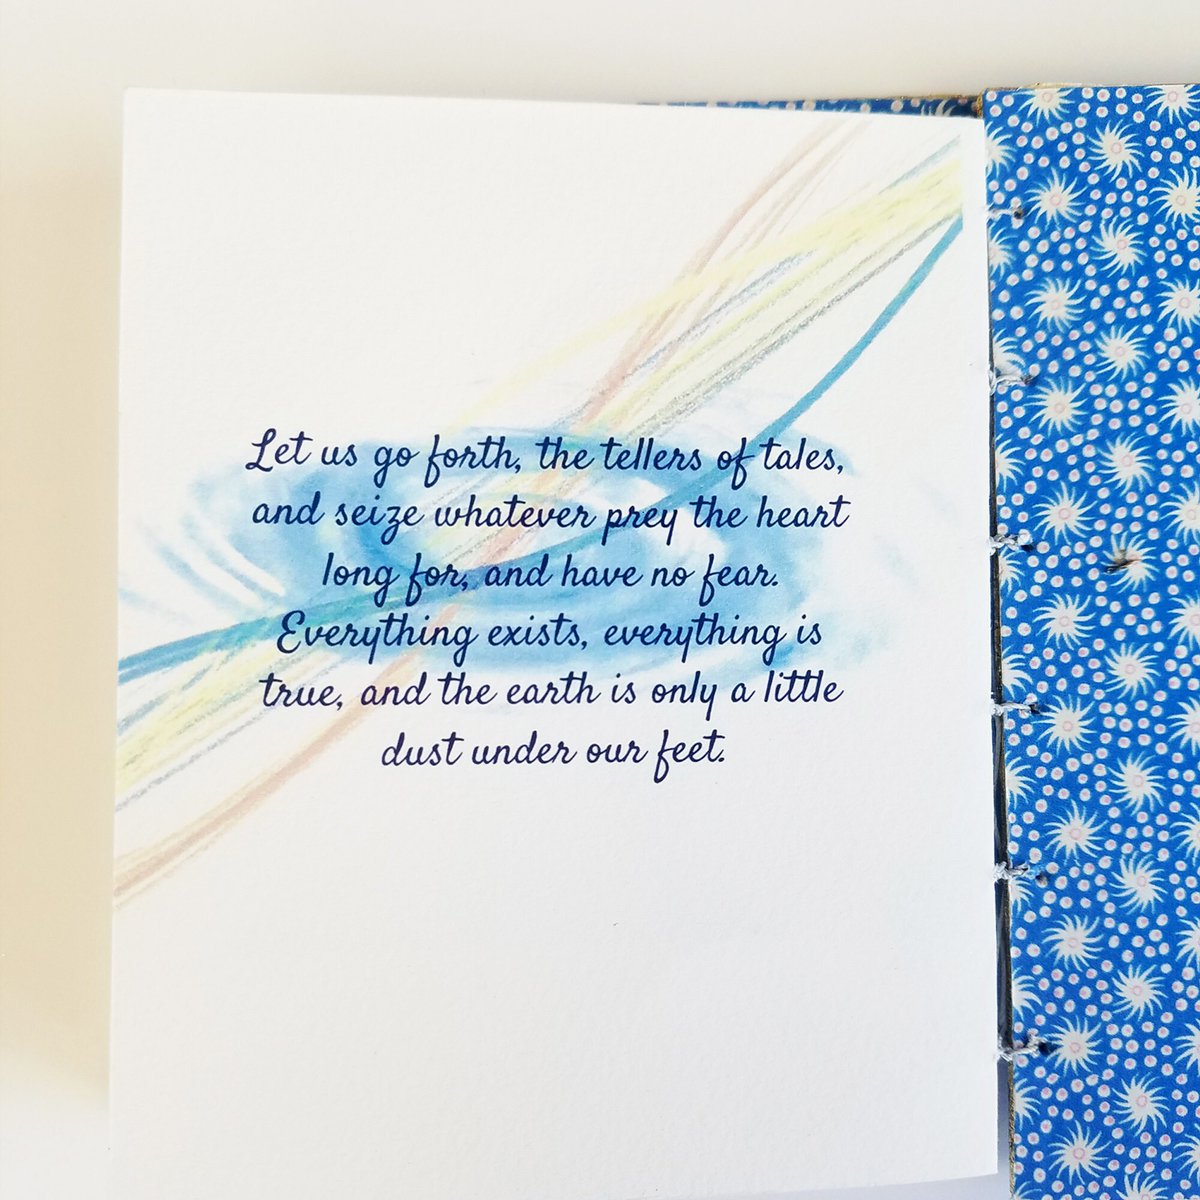 Let us go forth, the tellers of tales,
and seize whatever prey the heart
long for, and have no fear.
Everything exists, everything is
true, and the earth is only a little
dust under our feet.